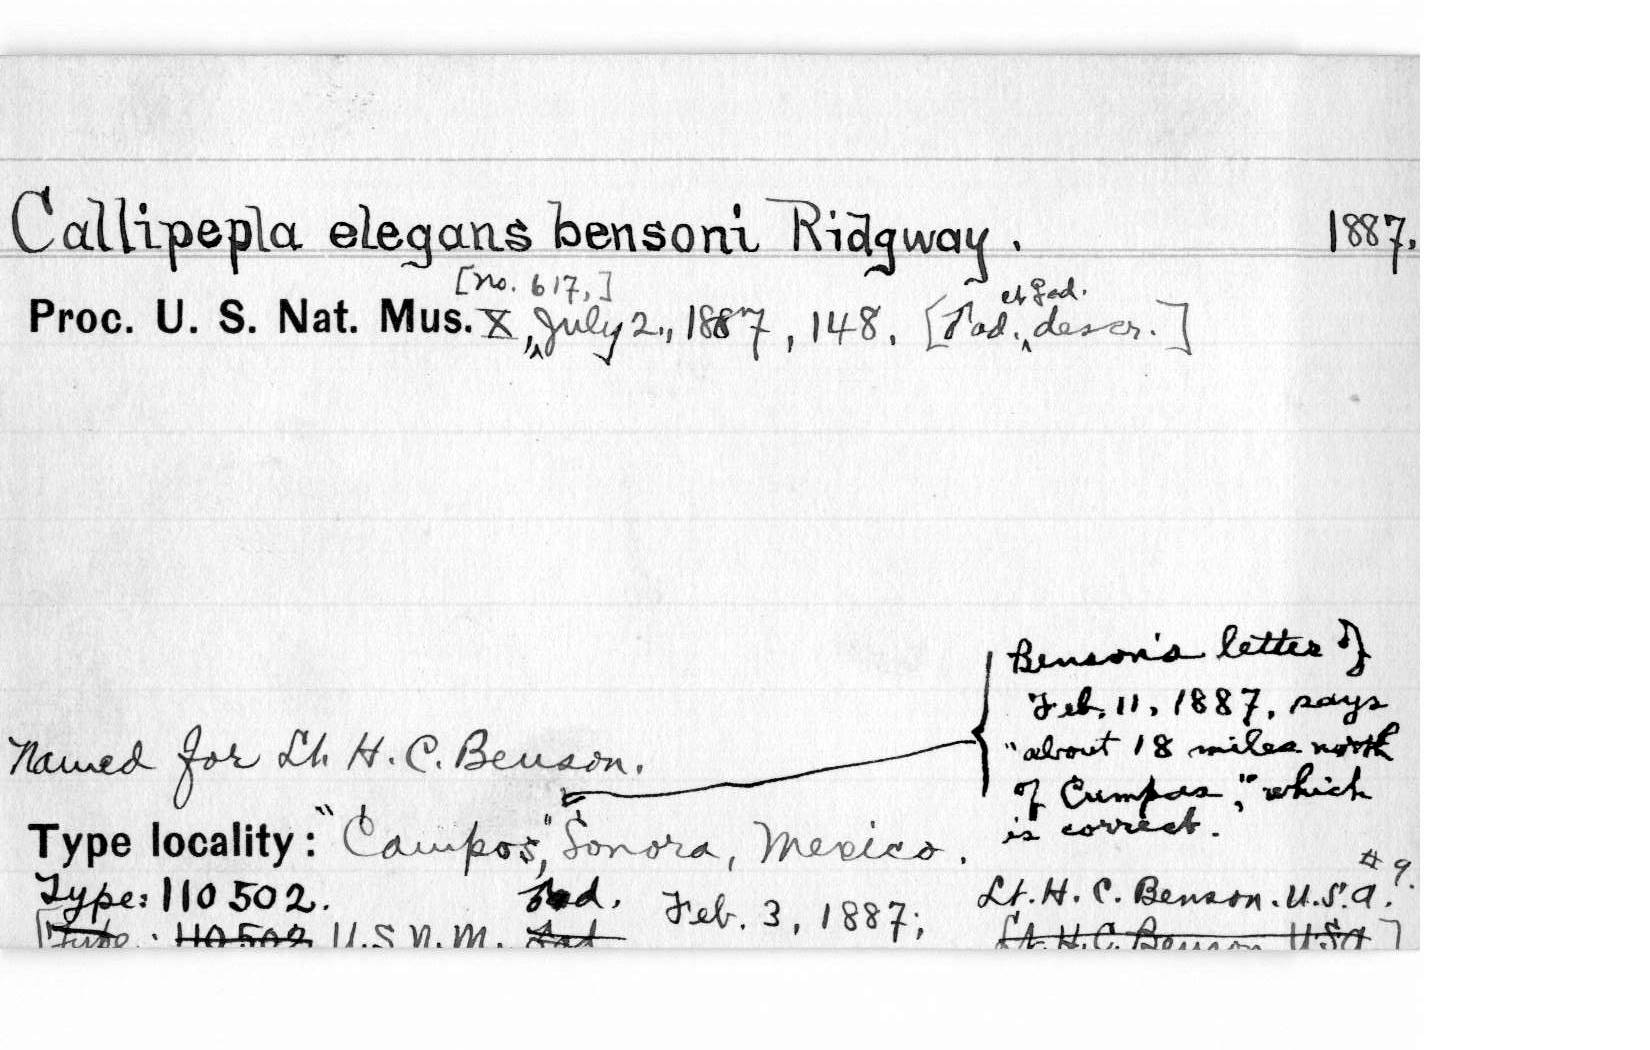 Callipepla elegans bensoni Ridgway. 1887.
[no. 617,]
Proc. U. S. Nat. Mus. X, July 2, 1887, 148. [♂ad. et ♀ad. descr.]
Benson's letter of
Feb. 11, 1887, says
"about 18 miles north
of Cumpas," which
is correct.
Named for Lt. H. C. Benson.
Type locality: "Campos," Sonora, Mexico.
#9.
Type: 110502. ad. Feb. 3, 1887; Lt. H. C. Benson. U.S.A.
[Type: 110502 U.S.N.M. Lt. H. C. Benson USA]